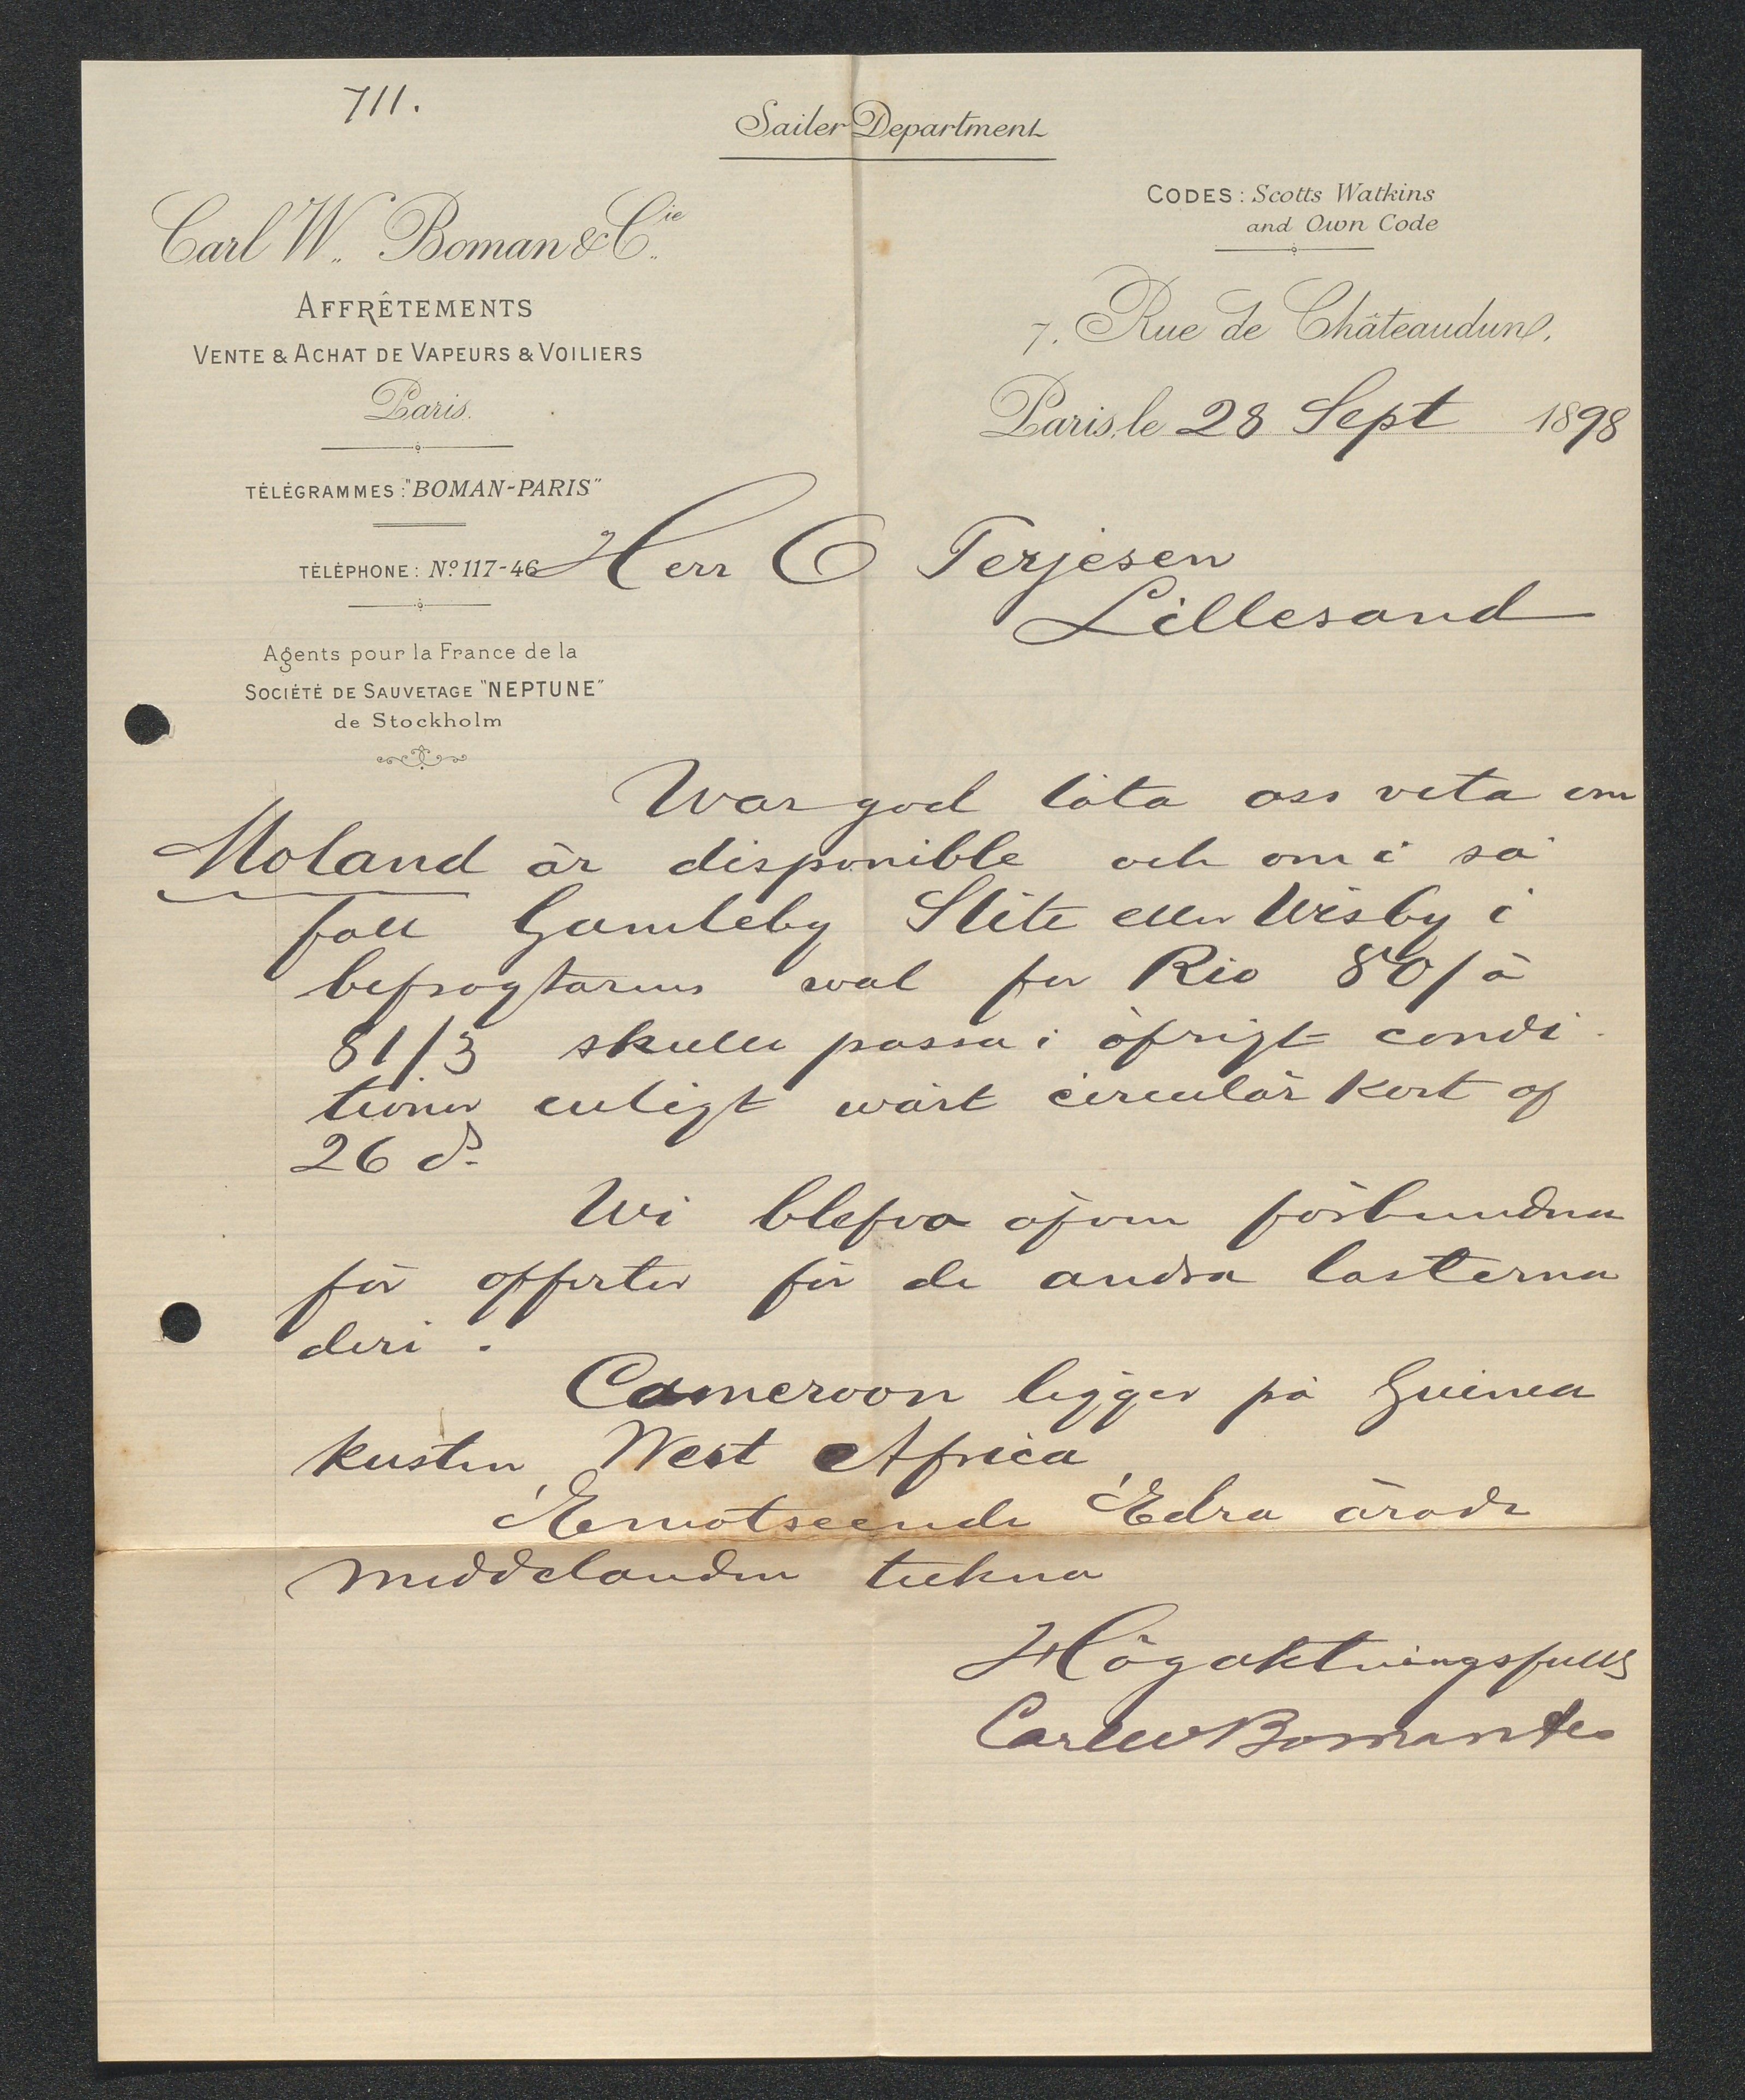 711.
Sailer Department
Carl W. Boman & Cie.
AFFRÊTEMENTS
VENTE & ACHAT DE VAPEURS & VOILIERS
Paris.
TÉLÉGRAMMES: "BOMAN-PARIS"
TÉLÉPHONE: No 117-46
Agents pour la France de la
SOCIÉTÉ DE SAUVETAGE "NEPTUNE"
de Stockholm
CODES: Scotts Watkins
and Own Code
7, Rue de Châteaudun,
Paris, le 28 Sept 1898
Herr O Terjesen
Lillesand
War god låta oss veta om
Moland är disponible och om i så
fall Gamleby Slite eller Wisby i
befragtarens wal for Rio 80/ à
81/3 skulle passa i öfrigt condi
tioner enligt wårt circulär kort af
26 ds.
Wi blefvo äfven förbundna
för offerter för de andra lasterna
deri.
Cameroon ligger på Guinea
kusten, West Africa,
Emotseende Edra ärade
meddelanden tekna
Högaktningsfullt
Carl W Boman & Co